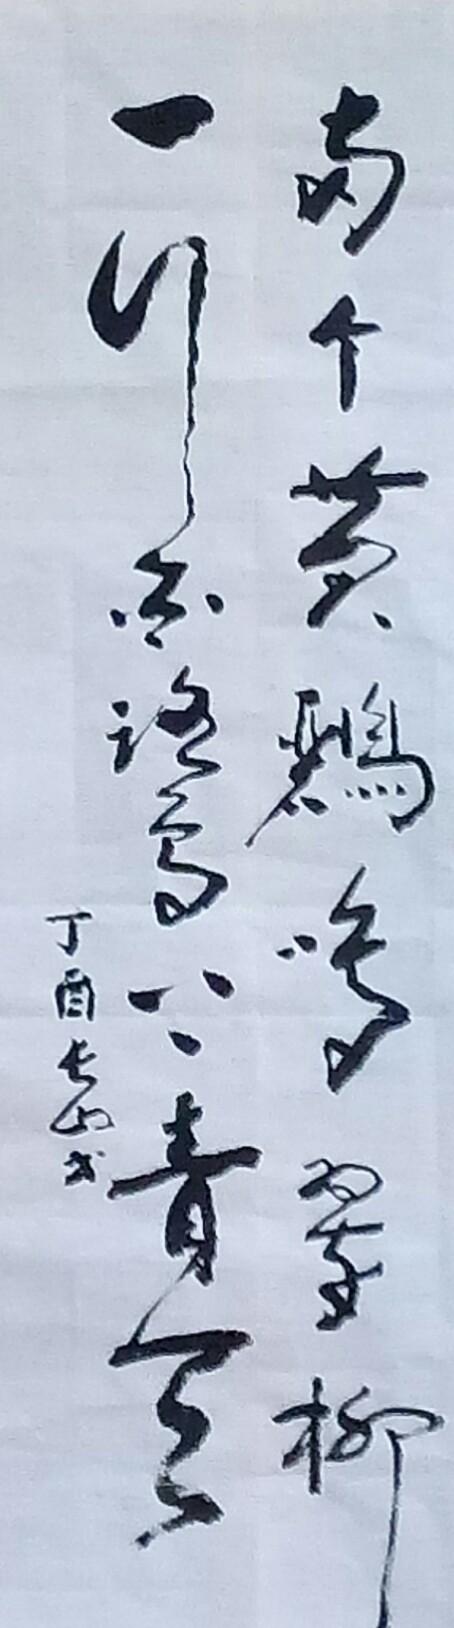 两个黄鹂鸣翠柳
一行白鹭上青天
丁酉长山书